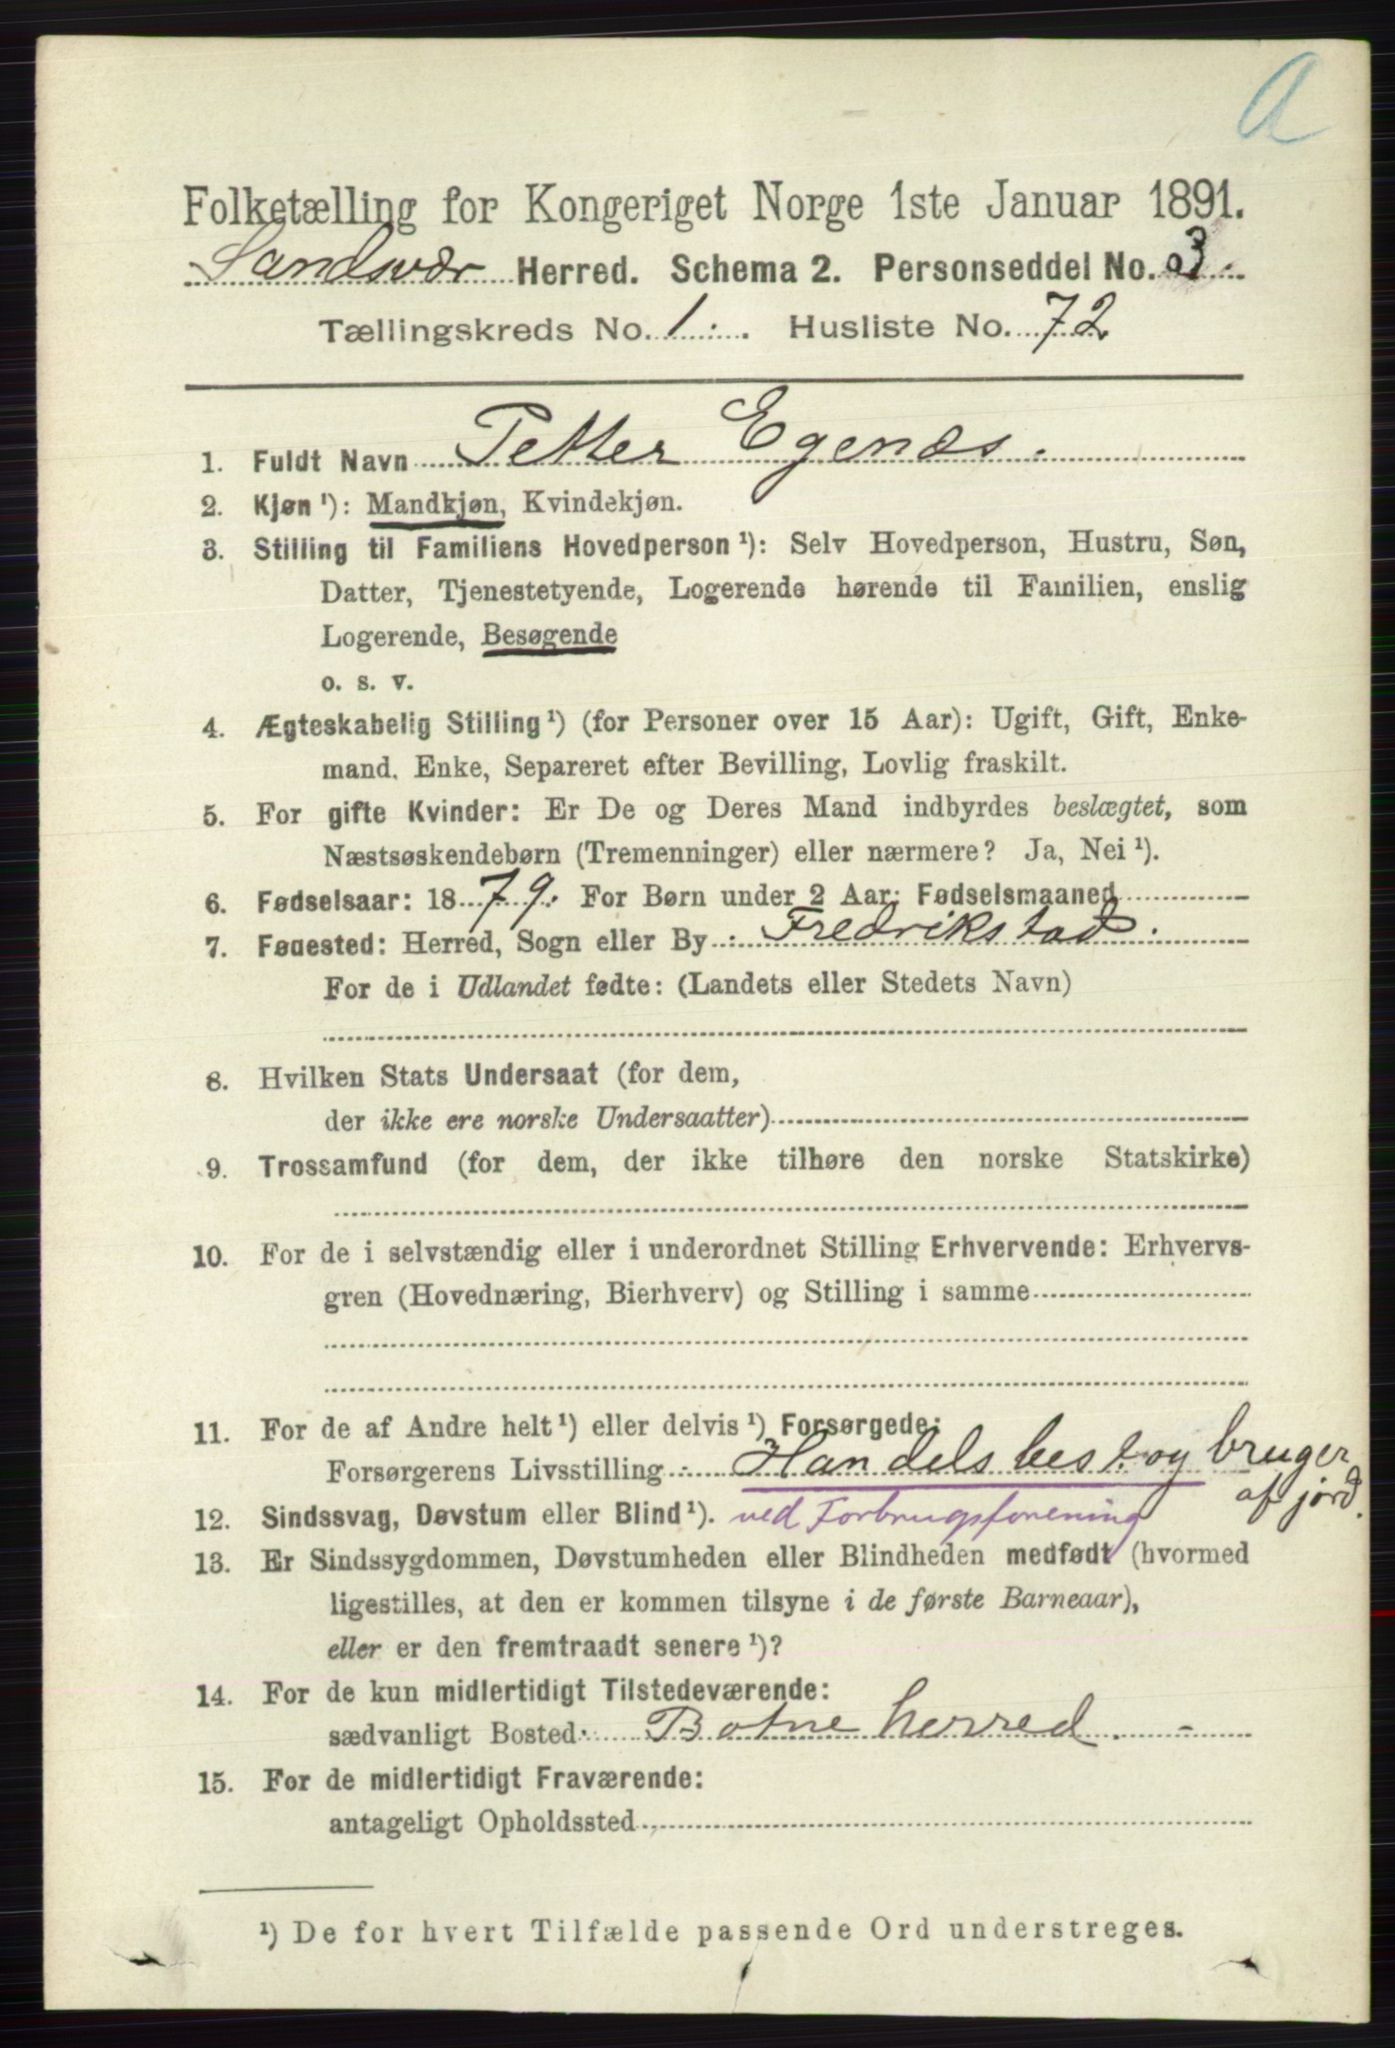 A
Folketælling for Kongeriget Norge 1ste Januar 1891.
Sandsvær Herred. Schema 2. Personseddel No. 3.
Tællingskreds No. 1. Husliste No. 72
1. Fuldt Navn Petter Egenæs.
2. Kjøn ¹): Mandkjøn, Kvindekjøn.
3. Stilling til Familiens Hovedperson ¹): Selv Hovedperson, Hustru, Søn,
Datter, Tjenestetyende, Logerende hørende til Familien, enslig
Logerende, Besøgende
o. s. v.
4. Ægteskabelig Stilling ¹) (for Personer over 15 Aar): Ugift, Gift, Enke-
mand, Enke, Separeret efter Bevilling, Lovlig fraskilt.
5. For gifte Kvinder: Er De og Deres Mand indbyrdes beslægtet, som
Næstsøskendebørn (Tremenninger) eller nærmere? Ja, Nei ¹).
6. Fødselsaar: 1879. For Børn under 2 Aar: Fødselsmaaned
7. Fødested: Herred, Sogn eller By Fredrikstad.
For de i Udlandet fødte: (Landets eller Stedets Navn)
8. Hvilken Stats Undersaat (for dem,
der ikke ere norske Undersaatter)
9. Trossamfund (for dem, der ikke tilhøre den norske Statskirke)
10. For de i selvstændig eller i underordnet Stilling Erhvervende: Erhvervs-
gren (Hovednæring, Bierhverv) og Stilling i samme
11. For de af Andre helt ¹) eller delvis ¹) Forsørgede:
Forsørgerens Livsstilling Handelsbest. og bruger
af jord.
12. Sindssvag, Døvstum eller Blind ¹). ved Forbrugsforening
13. Er Sindssygdommen, Døvstumheden eller Blindheden medfødt (hvormed
ligestilles, at den er kommen tilsyne i de første Barneaar),
eller er den fremtraadt senere ¹)?
14. For de kun midlertidigt Tilstedeværende:
sædvanligt Bosted Botne herred. -
15. For de midlertidigt Fraværende:
antageligt Opholdssted
¹) De for hvert Tilfælde passende Ord understreges.